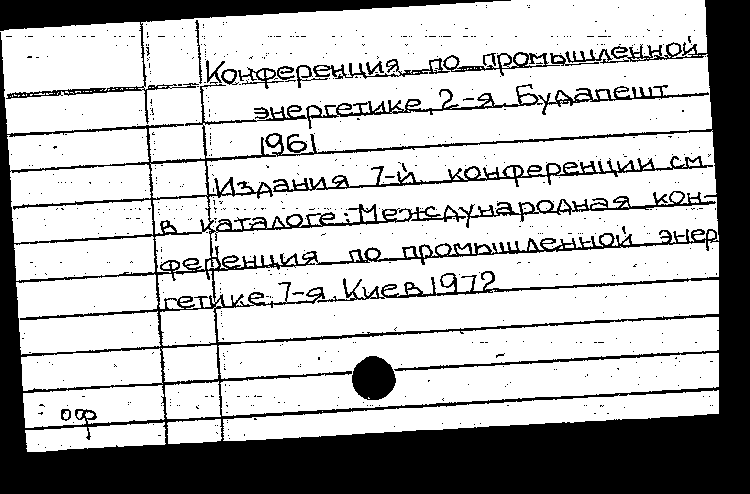 Конференция по промышленной
энергетике, 2-я. Будапешт
1961
Издания 7-й конференции см
в каталоге: Международная кон-
ференция по промышленной энер
гетике, 7-я. Киев 1972
оср